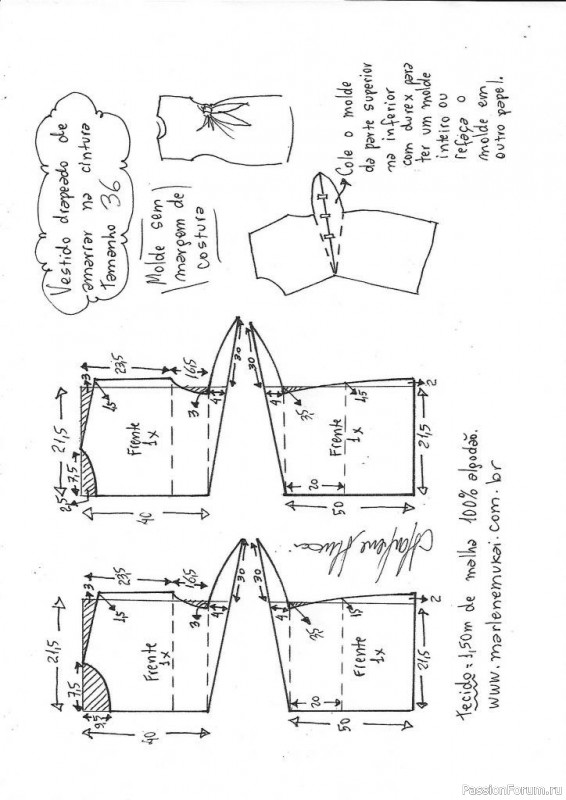 Vestido drapeado de
amarrar na cintura
Tamanho 36
Molde sem
margem de
costura
Cole o molde
da parte superior
na inferior
com durex para
ter um molde
inteiro ou
refaça o
molde em
outro papel.
23,5
16,5
3
1,5
21,5
7,5
2,5
Frente
1x
3
4
30
40
30
4
3,5
1,5
2
Frente
1x
20
21,5
50
23,5
16,5
3
1,5
21,5
7,5
9,5
Frente
1x
3
4
30
40
30
4
3,5
1,5
2
Frente
1x
20
21,5
50
tecido = 1,50m de malha 100% algodão.
www.marlenemukai.com.br
PassionForum.ru